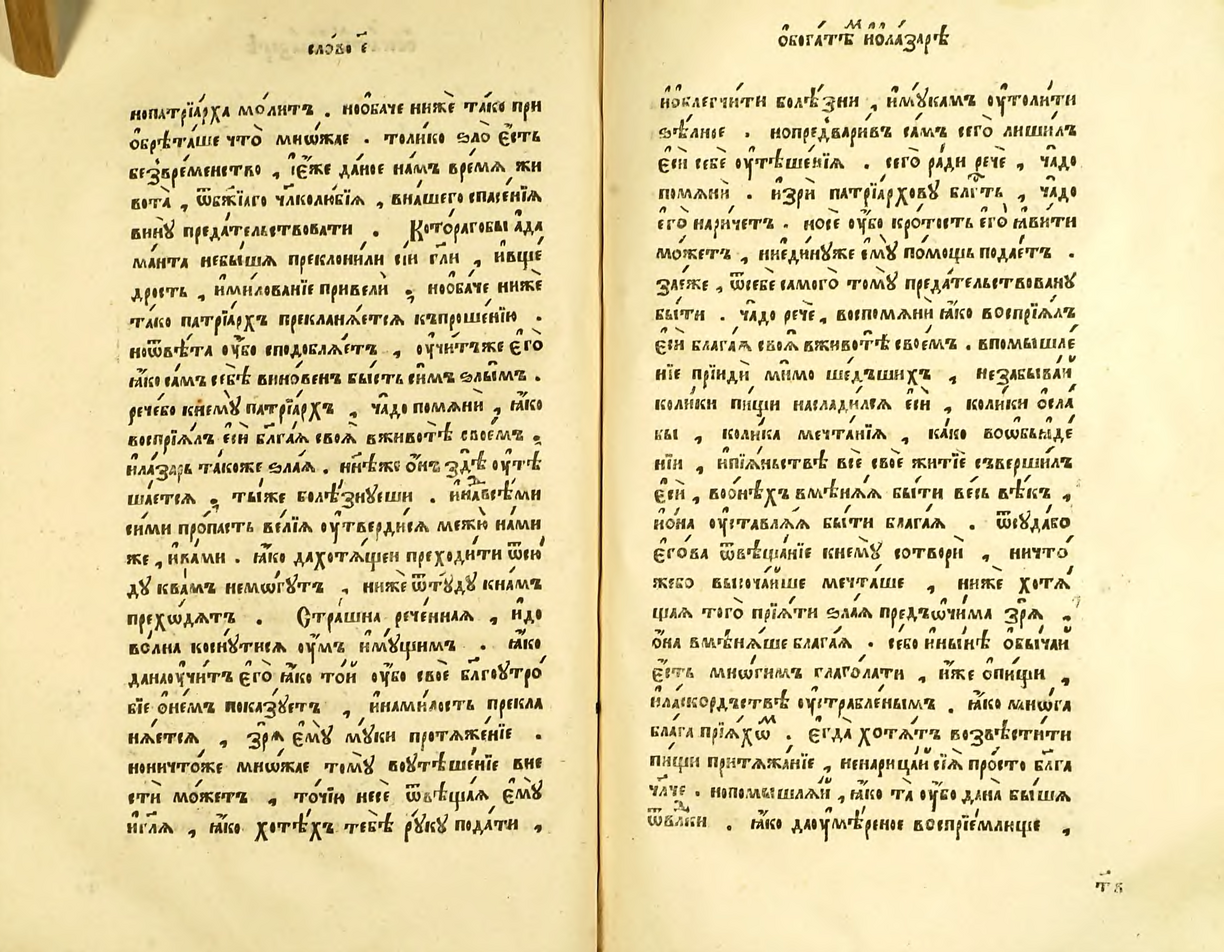 сло́во е҃
нопатрїа́рха мо́литъ . нооба́че нижѐ та́ко при
ѡбрѣ́таше что̀ мно́жае . толи́ко ѕло̀ є҆́сть
безвре́менство , і҆є́же да́ное на́мъ вре́мѧ жи
вота̀ , ѿбж҃їѧго чл҃колю́бїѧ , вна́шего спасе́нїѧ
винꙋ̀ преда́тельствовати . Кото́рагобы а҆да
ма́нта небы́шѧ преклони́ли сїѝ гл҃и , и҆вще
дрость , и҆милова́нїе привелѝ ; нооба́че нижѐ
та́ко патрїа́рхъ преклонѧ́етсѧ къпроше́нїю .
ноѿвѣ́та ᲂу҆́бо сподоблѧ́етъ , ᲂу҆чи́тъже є҆го̀
ꙗ҆́ко са́мъ себѣ̀ вино́венъ бы́сть си́мъ ѕлы́мъ .
рече́бо кнемꙋ̀ патрїа́рхъ , ча́до помѧнѝ , ꙗ҆́ко
воспрїѧ́лъ є҆сѝ бл҃га́ѧ своѧ̀ вживотѣ̀ свое́мъ ,
и҆ла́зарь та́коже ѕла́ѧ . нн҃ѣже о҆́нъ здѣ̀ ᲂу҆тѣ
ша́етсѧ , ты́же болѣ́знꙋеши . и҆надвсѣ́ми
си́ми про́пасть ве́лїѧ ᲂу҆тверди́сѧ межю̀ на́ми
же , и҆ва́ми . ꙗ҆́ко дахотѧ́щеи преходи́ти ѿсю́
дꙋ ква́мъ немо́гꙋтъ , нижѐ ѿтꙋ́дꙋ кна́мъ
прехо́дѧтъ . Стра́шна рече́ннаѧ , и҆до
во́лна коснꙋ́тисѧ ᲂу҆́мъ и҆мꙋ́щимъ . ꙗ҆́ко
данаᲂу҆чи́тъ є҆го̀ ꙗ҆́ко то́й ᲂу҆́бо своѐ бл҃гоꙋтро́
бїе о҆не́мъ показꙋ́етъ , и҆нами́лость прекла
нѧ́етсѧ , зрѧ̀ є҆мꙋ̀ мꙋ́ки протѧже́нїе .
нoничто́же мно́жае томꙋ̀ воꙋтѣше́нїе вне
стѝ мо́жетъ , то́чїю несѐ ѿвѣща́ѧ є҆мꙋ̀
и҆гл҃ѧ , ꙗ҆́ко хотѣ́хъ тебѣ̀ рꙋ́кꙋ пода́ти ,
ѡ҆бога́тѣ и҆ола́зарѣ
и҆ѡблегчи́ти болѣ́зни , и҆мꙋ́камъ ᲂу҆толи́ти
ѕѣ́лное . нопредвари́въ са́мъ сего̀ лиши́лъ
є҆сѝ себѐ ᲂу҆тѣше́нїѧ . сего̀ ра́ди речѐ , ча́до
помѧнѝ . и҆зрѝ патрїа́рховꙋ бл҃гть , ча́до
є҆го̀ нарича́етъ . носѐ ᲂу҆́бо кро́тость є҆го̀ ꙗ҆ви́ти
мо́жетъ , ниеди́нꙋже є҆мꙋ̀ по́мощь подае́тъ .
зане́же , ѿсебѐ самого̀ томꙋ̀ преда́тельствованꙋ
бы́ти . ча́до речѐ , воспомѧнѝ ꙗ҆́ко воспрїѧ́лъ
є҆сѝ блага́ѧ своѧ̀ вживотѣ̀ свое́мъ . впомышле
нїе прїидѝ ми́мо ше́дъшихъ , незабыва́й
коли́ки пи́щи наслади́лсѧ є҆сѝ , коли́ки о҆сла́
бы , коли́ка мечта́нїѧ , ка́ко воѡбьѧде́
нїи , и҆пїѧ́ньствѣ всѐ своѐ житїѐ съверши́лъ
є҆сѝ , воо́нѣхъ вмѣнѧ́ѧ бы́ти ве́сь вѣ́къ ,
и҆ѡна̀ ᲂу҆ставлѧ́ѧ бы́ти блага́ѧ . ѿсꙋда́бо
є҆гова̀ ѿвѣща́нїе кнемꙋ̀ сотворѝ , ничто́
жебо высоча́йше мечта́ше , нижѐ хотѧ́
щаѧ того̀ прїѧ́ти ѕла́ѧ предъѻчи́ма зрѧ̀ ,
о҆на̀ вмѣнѧ́ше блага́ѧ . се́бо и҆ны́нѣ ѡ҆бы́чай
є҆́сть мно́гимъ глаго́лати , и҆́же ѡ҆пи́щи ,
и҆ла́скордъствѣ ᲂу҆стра́бленымъ . ꙗ҆́ко мнѡ́га
бла́га прїѧ́хѡм . є҆гда̀ хотѧ́тъ возвѣсти́ти
пи́щи притѧжа́нїе , ненарица́й сїѧ̀ про́сто бл҃га
чл҃че . нопомышлѧ́й , ꙗ҆́ко та̀ ᲂу҆́бо дана̀ бы́шѧ
ѿвл҃ки . ꙗ҆́ко даᲂу҆мѣ́реное воспрїе́млюще ,
т҃ѕ